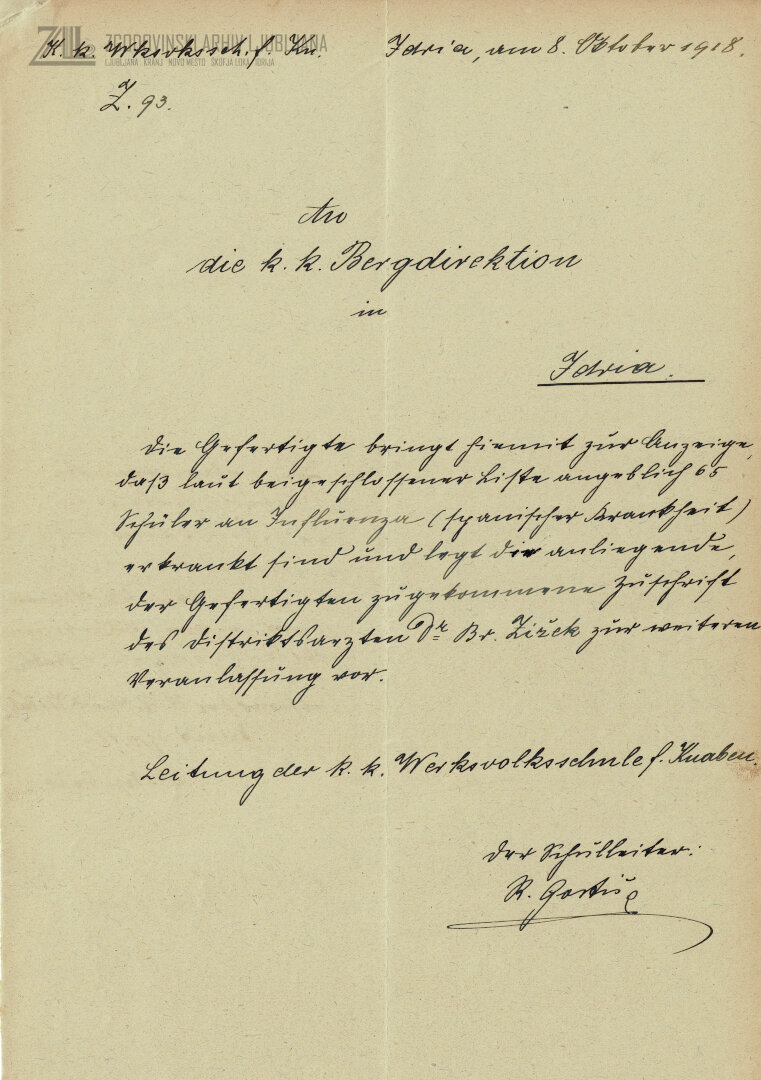 ZAL ZGODOVINSKI ARHIV LJUBLJANA
LJUBLJANA KRANJ NOVO MESTO ŠKOFJA LOKA IDRIJA
K. k. Wksvksch. f. Kn. Idria, am 8. Oktober 1918.
Z. 93.
An
die k. k. Bergdirektion
in
Idria.
Die Gefertigte bringt hiemit zur Anzeige,
daß laut beigeschlossener Liste angeblich 65
Schüler an Influenza (spanischer Krankheit)
erkrankt sind und legt die anliegende,
der Gefertigten zugekommene Zuschrift
des Distriktsarzten Dr Br. Žižek zur weiteren
Veranlassung vor.
Leitung der k. k. Werksvolksschule f. Knaben.
Der Schulleiter: